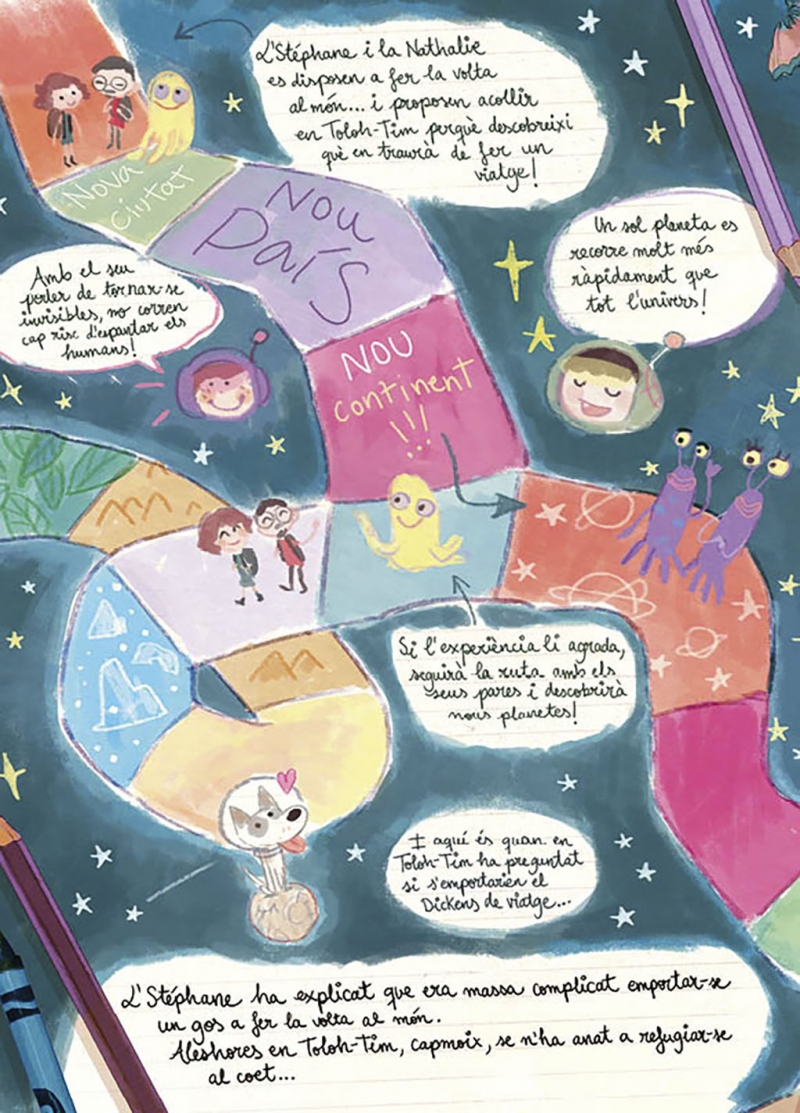 L'Stéphane i la Nathalie
es disposen a fer la volta
al món... i proposen acollir
en Toloh-Tim perquè descobreixi
què en traurà de fer un
viatge!
Nova
ciutat
Nou
País
Un sol planeta es
recorre molt més
ràpidament que
tot l'univers!
Amb el seu
poder de tornar-se
invisibles, no corren
cap risc d'espantar els
humans!
NOU
continent
!!!
Si l'experiència li agrada,
seguirà la ruta amb els
seus pares i descobrirà
nous planetes!
I aquí és quan en
Toloh-Tim ha preguntat
si s'emportarien el
Dickens de viatge...
L'Stéphane ha explicat que era massa complicat emportar-se
un gos a fer la volta al món.
Aleshores en Toloh-Tim, capmoix, se n'ha anat a refugiar-se
al coet...